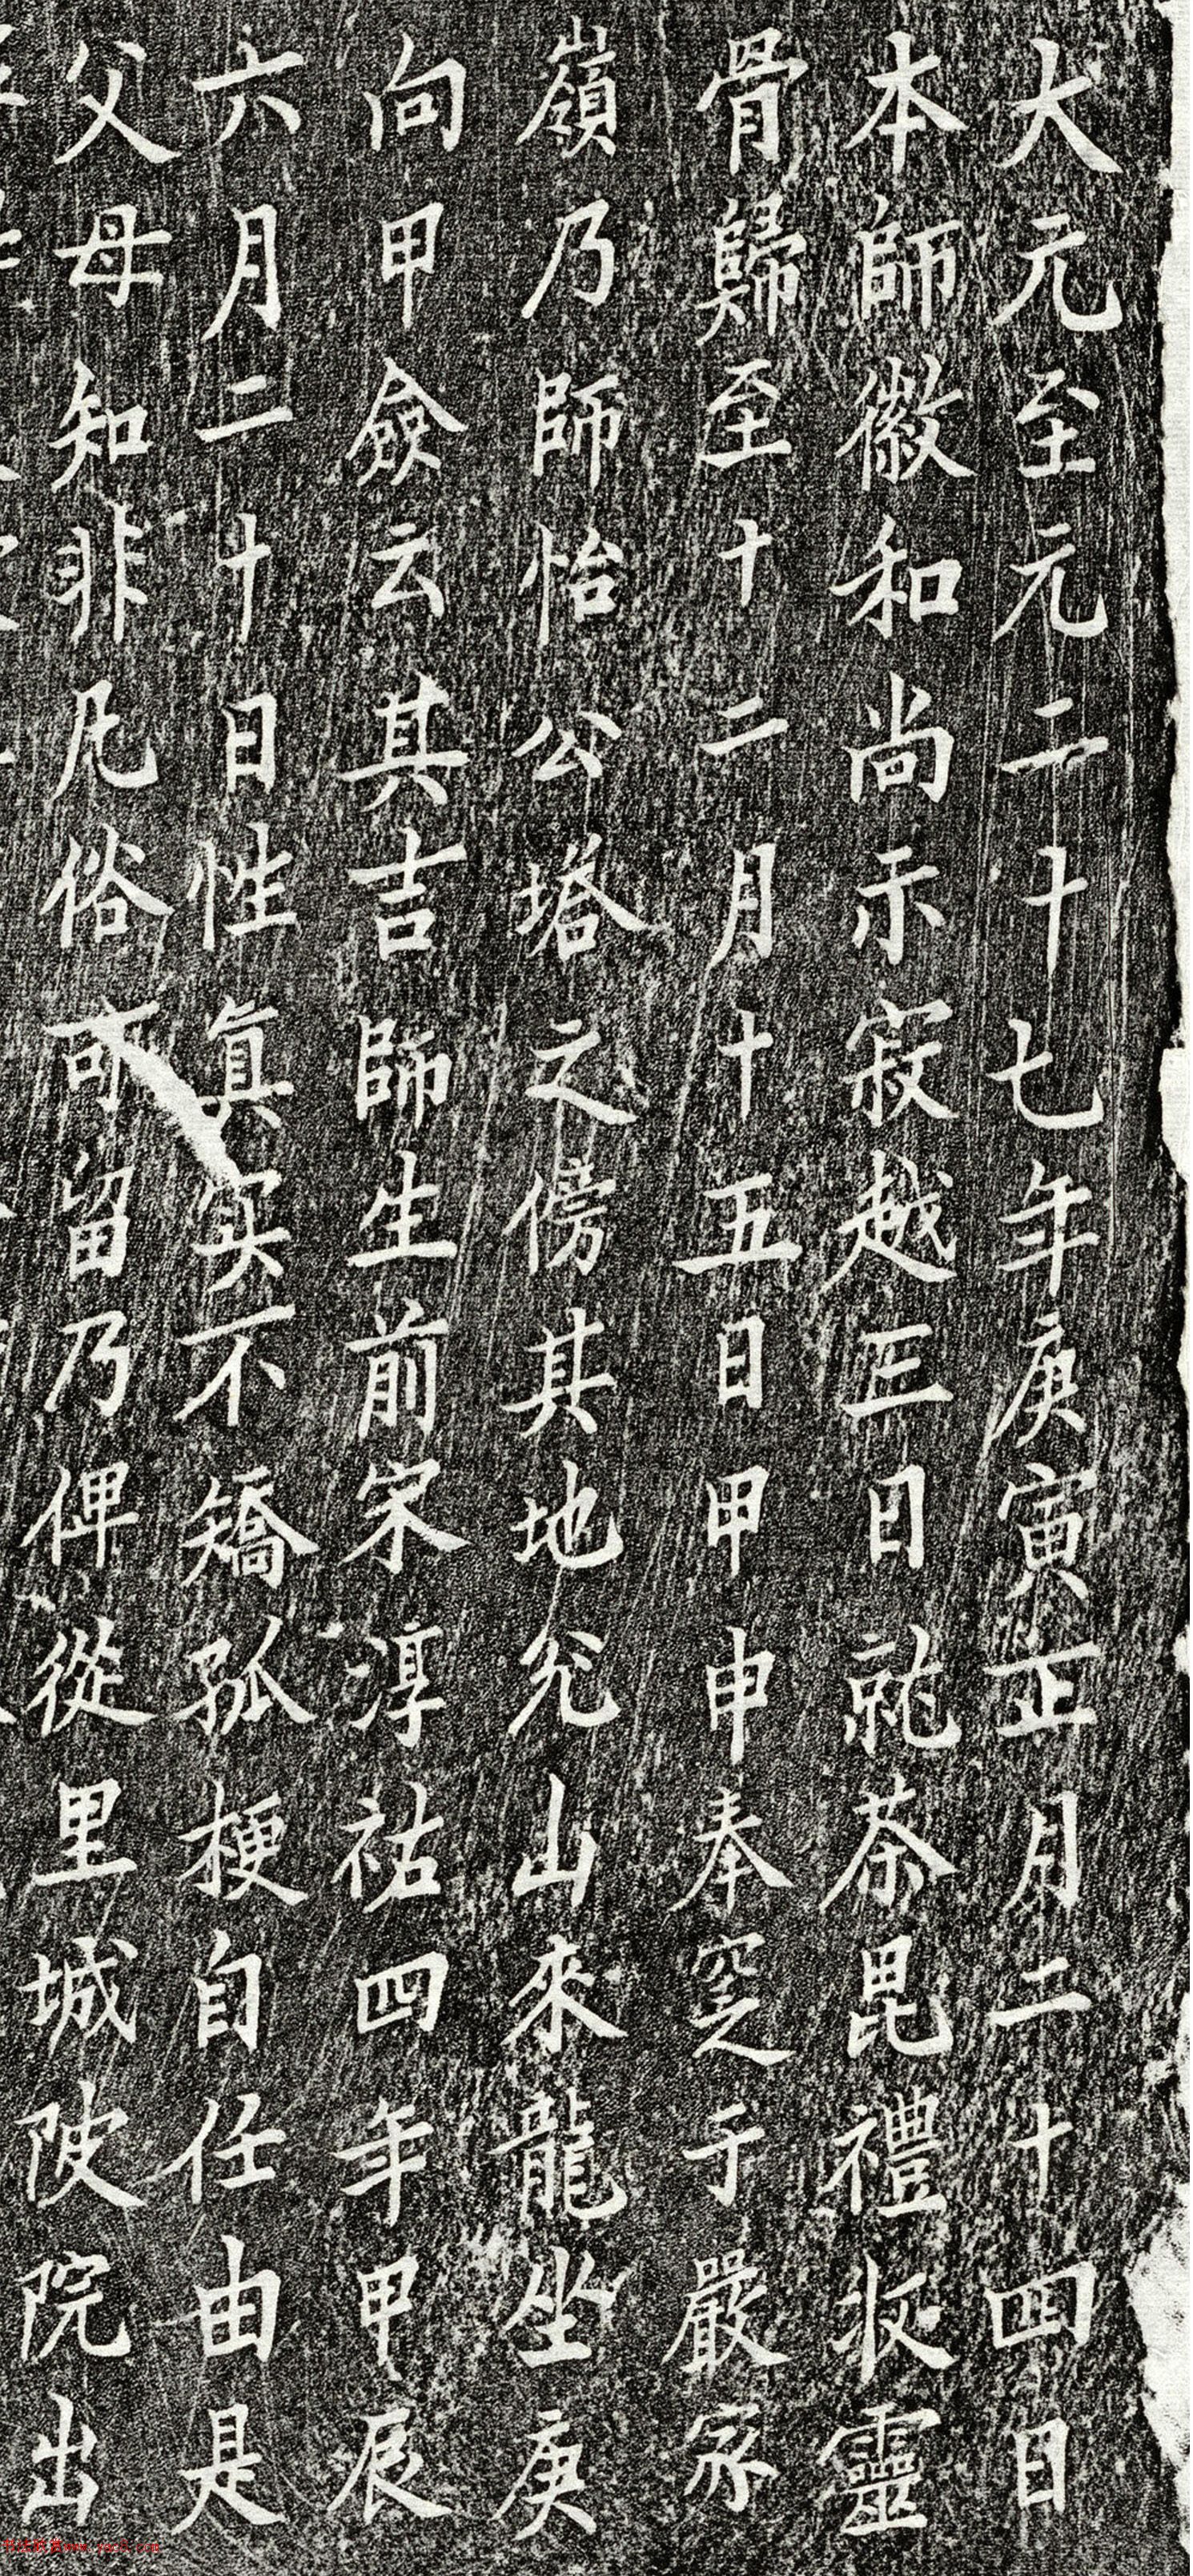 大元至元二十七年庚寅正月二十四日
本師徽和尚示寂越三日就茶毘禮收靈
骨歸至十二月十五日甲申奉窆于嚴家
嶺乃師怡公塔之傍其地兊山來龍坐庚
向甲僉云其吉師生前宋淳祐四年甲辰
六月二十日性真实不矯孤梗自任由是
父母知非凡俗可留乃俾從里城陂院出